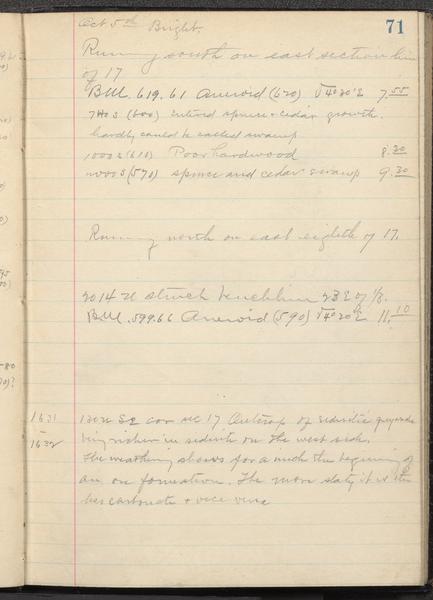 Oct 5th Bright.
71
Running south on east section line
of 17
B.M. 619.61 Aneroid (620) V 4°20'E 7.55
740 S (600) entered spruce & cedar growth.
hardly could be called swamp
1000 S (610) Poor hardwood 8.20
2000 S (570) spruce and cedar swamp 9.20
Running north on east eighth of 17.
2014 N struck trench line 23 E of 1/8.
B.M. 599.66 Aneroid (590) V 4°20'E 11.10
1631
1632
130 N SE cor sec 17 Outcrop of sideritic
richer in siderite on the west side.
The weathering shows for a inch the beginning of
an ore formation. The more slaty it is the
less carbonate & vice versa